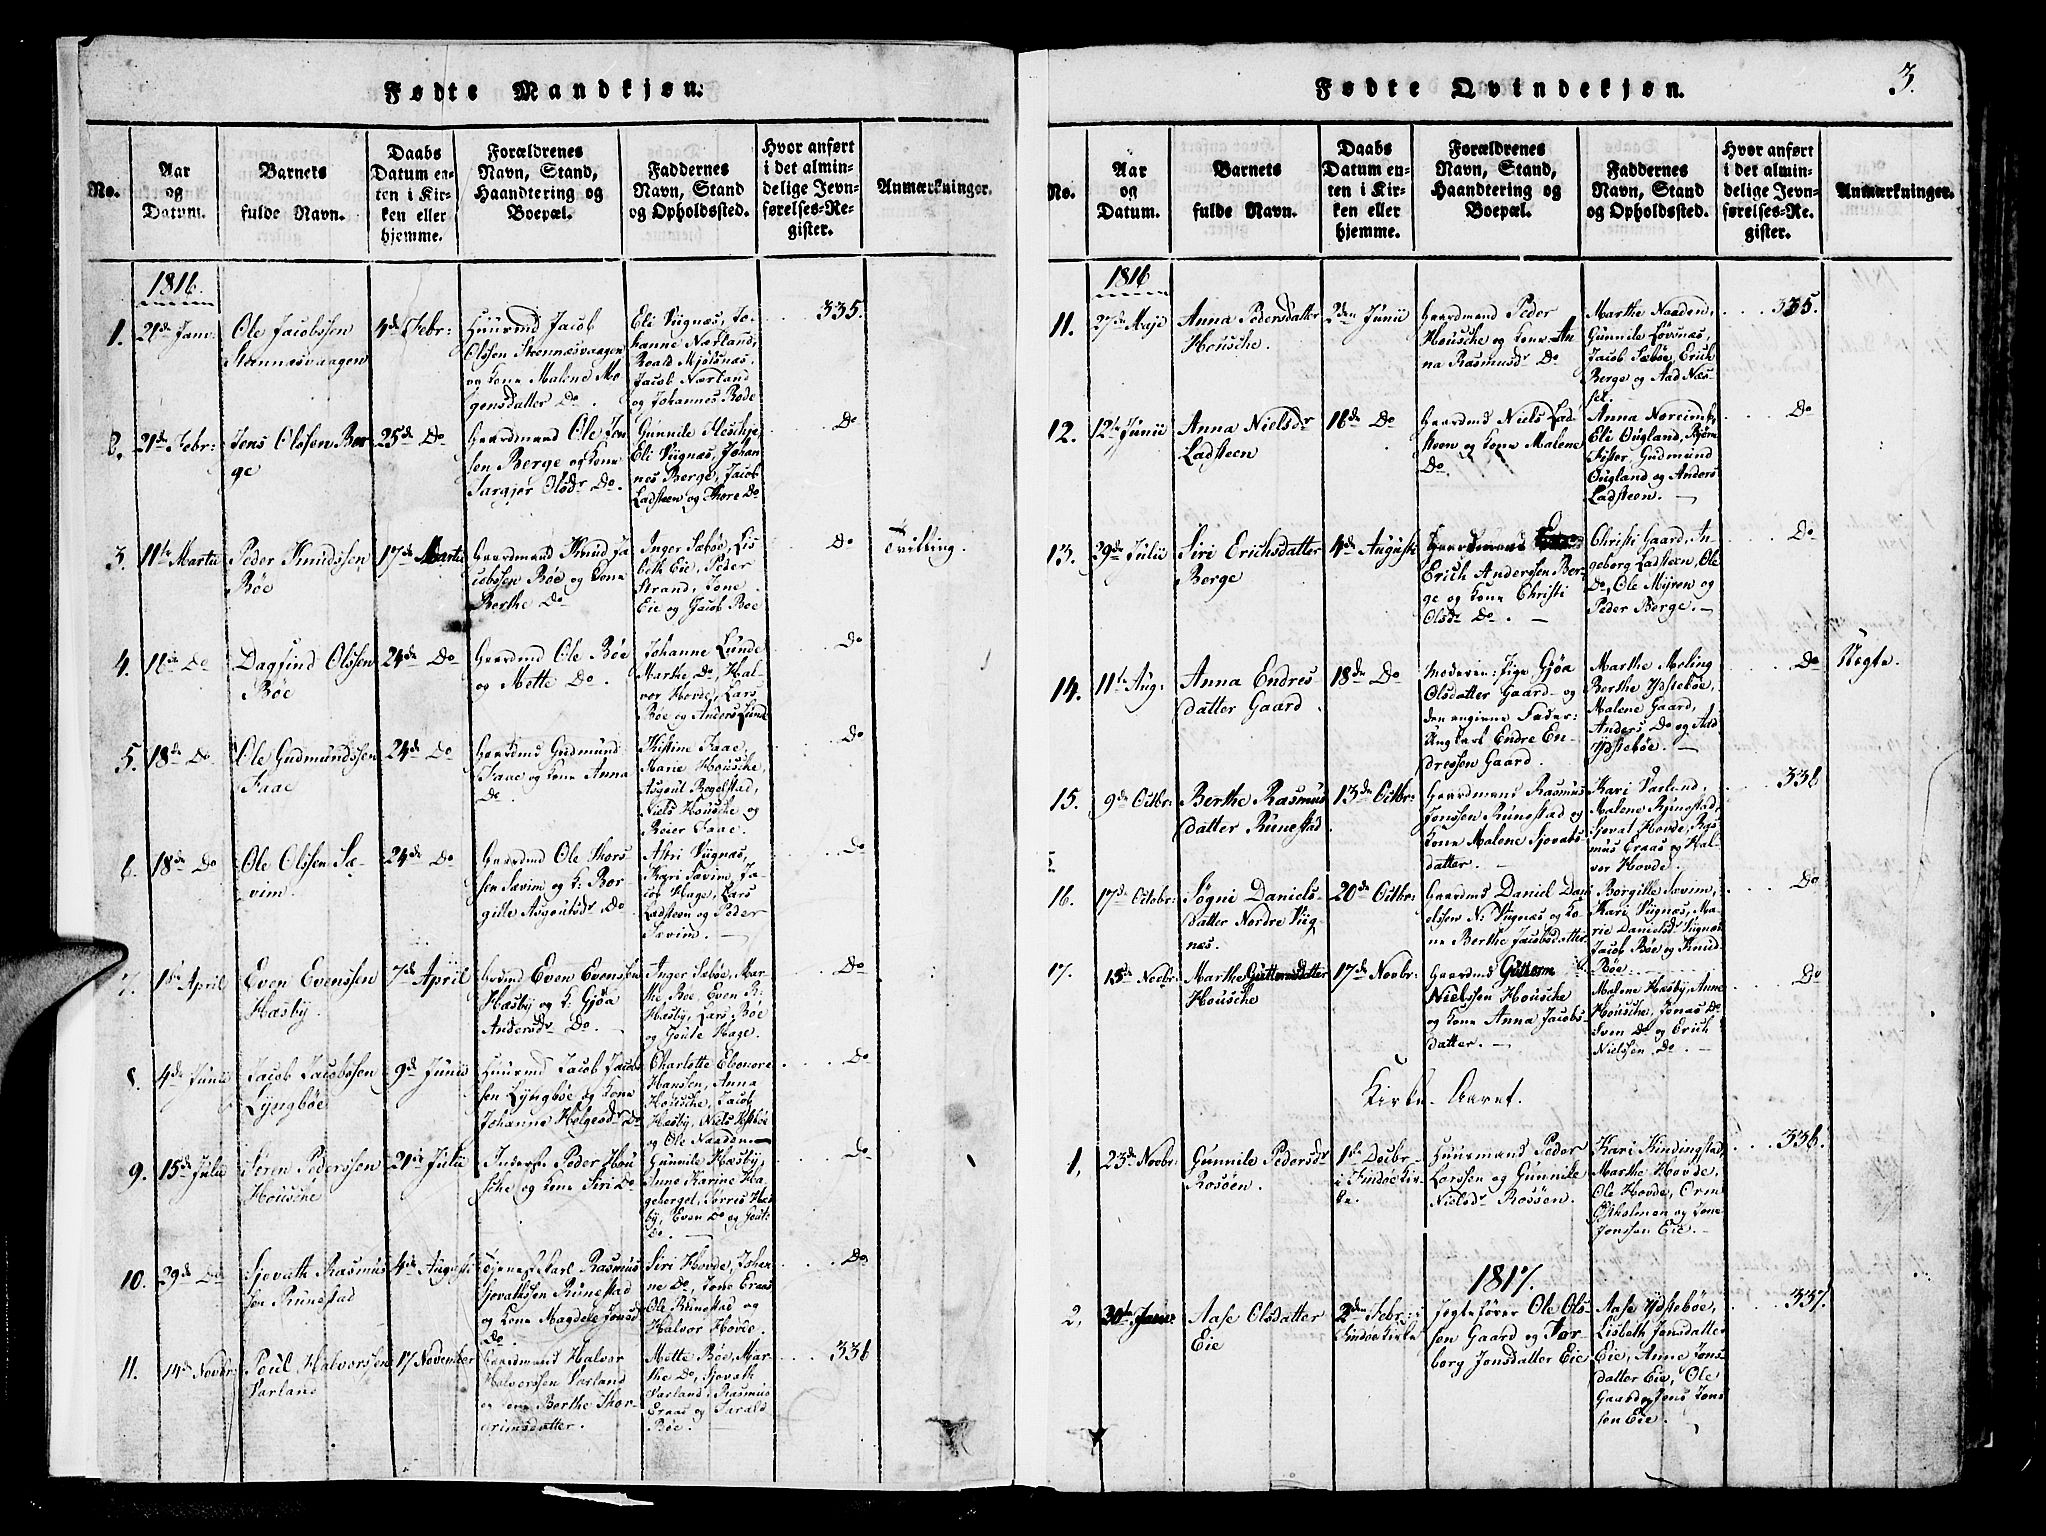 Fødte Mandkjøn.
No.
Aar
og
Datum.
Barnets
fulde Navn.
Daabs
Datum en-
ten i Kir-
ken eller
hjemme.
Forældrenes
Navn, Stand,
Haandtering og
Boepæl.
Faddernes
Navn, Stand
og Opholdssted.
Hvor anført
i det almin-
delige Jevn-
førelses-Re-
gister.
Anmærkninger.
1816.
1.
21de Janu
Ole Jacobssen
Steenæsvaagen
4de Febr:
Huusmd Jacob
Olssen Steenæsvaagen
og kone Malene Mo
gensdatter Do.
Eli Viignæs, Jo-
hanne Nærland,
Roald Mjølsnæs,
Jacob Nærland
og Johannes Bode
335.
2.
21de Febr:
Jens Olssen Ber
ge
25de Do
Gaardmand Ole Jen
sen Berge og kone
Olsdr Do.
Gunnile Hesthje
Eli Viignæs, Johan
nes Berge, Jacob
Ladsteen og Thore Do
Do
3.
11te Martii
Peder Knudssen
Bøe
17de Martii
Gaardmand Knud Ja
cobssen Bøe og kone
Berthe Do
Inger Sæbøe, Lis
beth Eie, Peder
Strand, Jone
Eie og Jacob Bøe
Do
Tvilling.
4.
16de Do
Dagfind Olssen
Bøe
24de Do
Gaardmd Ole Bøe
og Mette Do.
Johanne Lunde
Marthe Do, Hal-
vor Hovde, Lars
Bøe og Anders Lunde
Do
5.
18de Do
Ole Gudmundssen
Faae
24de Do
Gaardmd Gudmund
Faae og kone Anna
Do.
Kistine Faae,
Marie Housche,
Asgout Regelstad,
Niels Housche og
Reier Faae.
Do
6.
18de Do
Ole Olssen Sæ-
vim.
24de Do
Gaardmd Ole Thors
sen Sævim og K: Bor
gitte Asgoutsdr Do
Astri Viignæs,
Kari Sævim, Ja
cob Hage, Lars
Ladsteen og Peder
Sævim.
Do
7.
1ste April
Even Evenssen
Hæsby.
7de April
Even Evenssen
Hæsby og K: Gjøa
Andersdr Do.
Inger Sæbøe, Mar-
the Bøe, Even R:
Hæsby, Lars Bøe
og Goute Hage.
Do
8.
4de Junii
Jacob Jacobssen
Lyngbøe
9de Junii
Huusmd Jacob Jacobs
sen Lyngbøe og kone
Johanne Helgesdr Do
Charlotte Elonore
Hansen, Anna
Housche, Jacob
Hæsby, Niels
og Ole Naaden.
Do
9.
15de Julii
Søren Pederssen
Housche
21de Julii
Inderst Peder Hou
sche og kone Siri Do
Gunnile Hæsby,
Anne Karine Ha
geberget, Torres Hæs
by, Even Do og Gout:
Do.
Do
10.
29de Do
Sjovath Rasmus
sen Runestad
4de Augusti
Rasmus
Sjovathssen Runestad
og kone Magdele Jonsd
Do
Siri Hovde, Johan
ne Do, Jone Eraas
Ole Runestad og
Halvor Hovde.
Do
11.
14de Novbr:
Poul Halvorssen
Varland
17 November
Gaardmand Halvor
Halvorssen Varland
og kone Berthe Thor-
grimsdatter.
Mette Bøe, Mar-
the Do, Sjovath
Varland, Rasmus
Eraas og Tarald
Bøe.
336
3.
Fødte Qvindekjøn.
No.
Aar
og
Datum.
Barnets
fulde Navn.
Daabs
Datum en-
ten i Kir-
ken eller
hjemme.
Forældrenes
Navn, Stand,
Haandtering og
Boepæl.
Faddernes
Navn, Stand
og Opholdssted.
Hvor anført
i det almin-
delige Jevn-
førelses-Re-
gister.
Anmærkninger.
1816
11.
27de Maji
Anna Pedersdatter
Housche.
2den Junii
Gaardmand Peder
Housche og kone An
na Rasmusdr Do
Marthe Naaden,
Gunnile Løvsnæs,
Jacob Sæbøe, Erich
Berge og Aad Næs-
sel.
335.
12.
12te Junii
Anna Nielsdr
Ladsteen
16de Do
Gaardmd Niels Lad
steen og kone Malene
Do.
Anna Noreim,
Eli Ougland, Bjørn
Fister, Gudmund
Ougland og Anders
Ladsteen.
Do
13.
29de Julii
Siri Erichsdatter
Berge
4de Augusti
Gaardmand
Erich Anderssen Ber-
ge og kone Christi
Olsdr Do.
Christi Gaard, In
geborg Ladsteen, Ole
Do, Ole Myren og
Peder Berge.
Do
14.
11te Aug:
Anna Endres
datter Gaard
18de Do
Moderen: Pige Gjøa
Olsdatter Gaard og
den angivne Fader:
Ungkarl Endre En-
dressen Gaard.
Marthe Meling
Berthe Ydstebøe,
Malene Gaard,
Anders Do og Aad
Ydstebøe.
Do
Uægte.
15.
9de Octbr:
Berthe Rasmus
datter Runestad
13de Octbr:
Gaardmand Rasmus
Jonssen Runestad og
kone Malene Sjovats
datter.
Kari Varland,
Malene Runestad,
Sjovat Hovde, Ras
mus Eraas og Hal-
vor Hovde.
336
16.
17de Octobr:
Søgni Daniels-
datter Nordre Viig
næs.
20de Octbr:
Gaardmd Daniel Dani
elssen N: Viignæs og ko-
ne Berthe Jacobsdatter
Borgitte Sævim,
Kari Viignæs, Ma-
rie Danielsdr Viignæs
Jacob Bøe og Knud
Bøe.
Do
17.
15de Novbr:
Marthe Guttormsdatter
Housche
17de Novbr:
Gaardmd Guttorm
Nielssen Housche
og kone Anna Jacobs-
datter.
Malene Hæsby, Anne
Housche, Jonas Do
Sven Do og Erich
Nielssen Do.
Do
Kirke-Aaret.
1.
23de Novbr:
Gunnile Pedersdr
Rosøen.
1ste Decbr:
i Findøe Kir-
ke.
Huusmand Peder
Larssen og Gunnile
Nielsdr Rossøen.
Kari Kindingstad,
Marthe Hovde,
Ole Hovde, Orm
og Jone
Jonssen Eie.
336.
1817.
2.
30te Janu:
Aase Olsdatter
Eie
2den Febr: i
Findøe Kirke
Jegtefører Ole Ols-
sen Gaard og Tor-
borg Jonsdatter Eie
Aase Ydstebøe,
Lisbeth Jonsdatter
Eie, Anne Jons
datter Eie, Ole
Gaard og Jens Jons
sen Eie.
337.